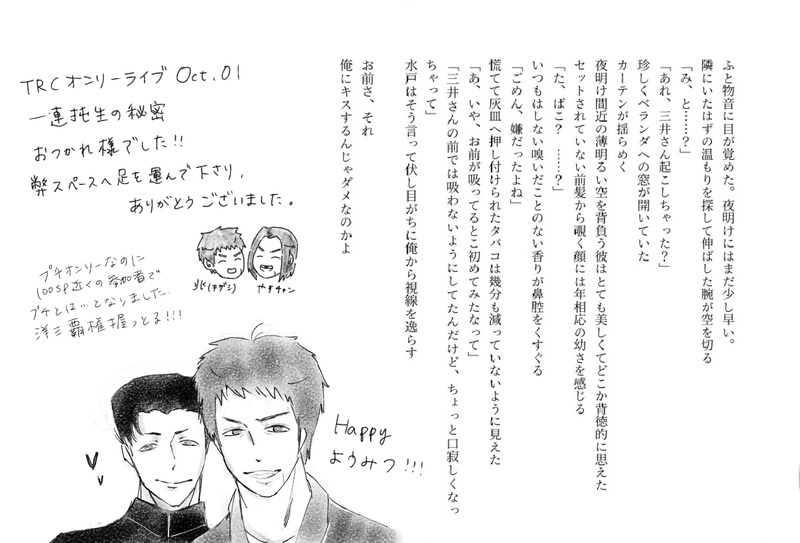 ふと物音に目が覚めた。夜明けにはまだ少し早い。
隣にいたはずの温もりを探して伸ばした腕が空を切る
「み、と……？」
「あれ、三井さん起こしちゃった？」
珍しくベランダへの窓が開いていた
カーテンが揺らめく
夜明け間近の薄明るい空を背負う彼はとても美しくてどこか背徳的に思えた
セットされていない前髪から覗く顔には年相応の幼さを感じる
「た、ばこ？　……？」
いつもはしない嗅いだことのない香りが鼻腔をくすぐる
「ごめん、嫌だったよね」
慌てて灰皿へ押し付けられたタバコは幾分も減っていないように見えた
「あ、いや、お前が吸ってるとこ初めてみたなって」
「三井さんの前では吸わないようにしてたんだけど、ちょっと口寂しくなっ
ちゃって」
水戸はそう言って伏し目がちに俺から視線を逸らす
お前さ、それ
俺にキスするんじゃダメなのかよ
TRCオンリーライブ Oct.01
一連托生の秘密
おつかれ様でした!!
弊スペースへ足を運んで下さり、
ありがとうございました。
兆(キザシ)
やすチャン
プチオンリーなのに
100SP近くの参加者で
プチとは…となりました。
洋三覇権握っとる!!!
Happy
ようみつ!!!